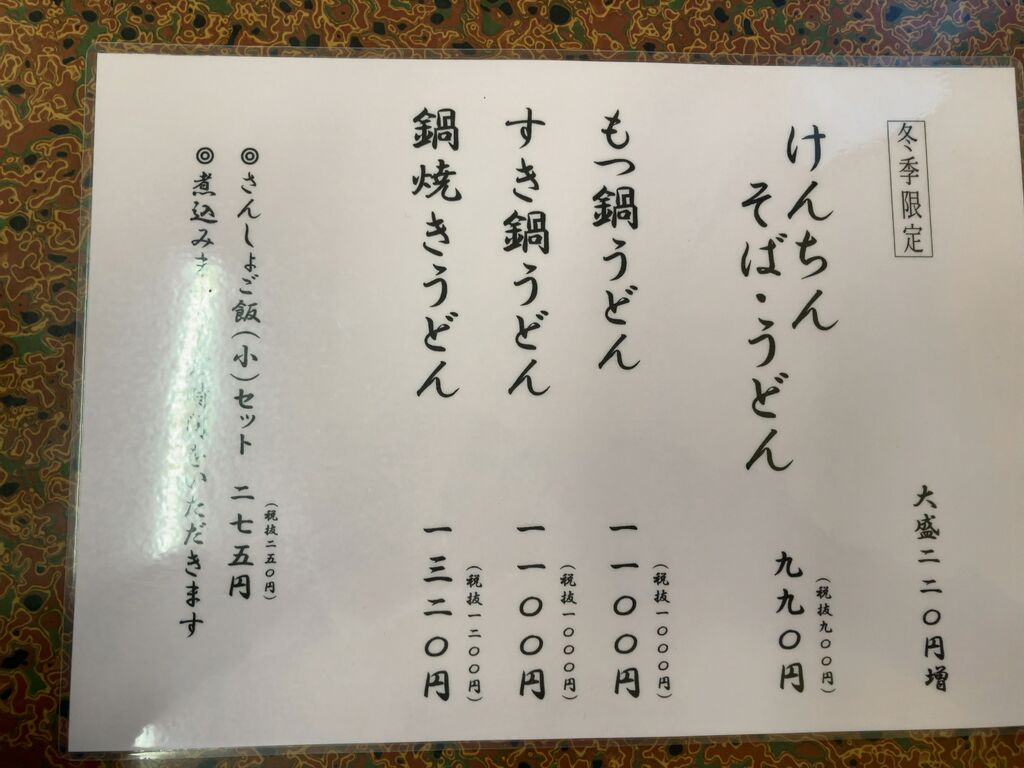 冬季限定
大盛二二〇円増
けんちん
そば・うどん
九九〇円
(税抜九〇〇円)
もつ鍋うどん
一一〇〇円
(税抜一〇〇〇円)
すき鍋うどん
一一〇〇円
(税抜一〇〇〇円)
鍋焼きうどん
一三二〇円
(税抜一二〇〇円)
◎さんしょご飯(小)セット 二七五円
(税抜二五〇円)
◎煮込みま 時間をいただきます